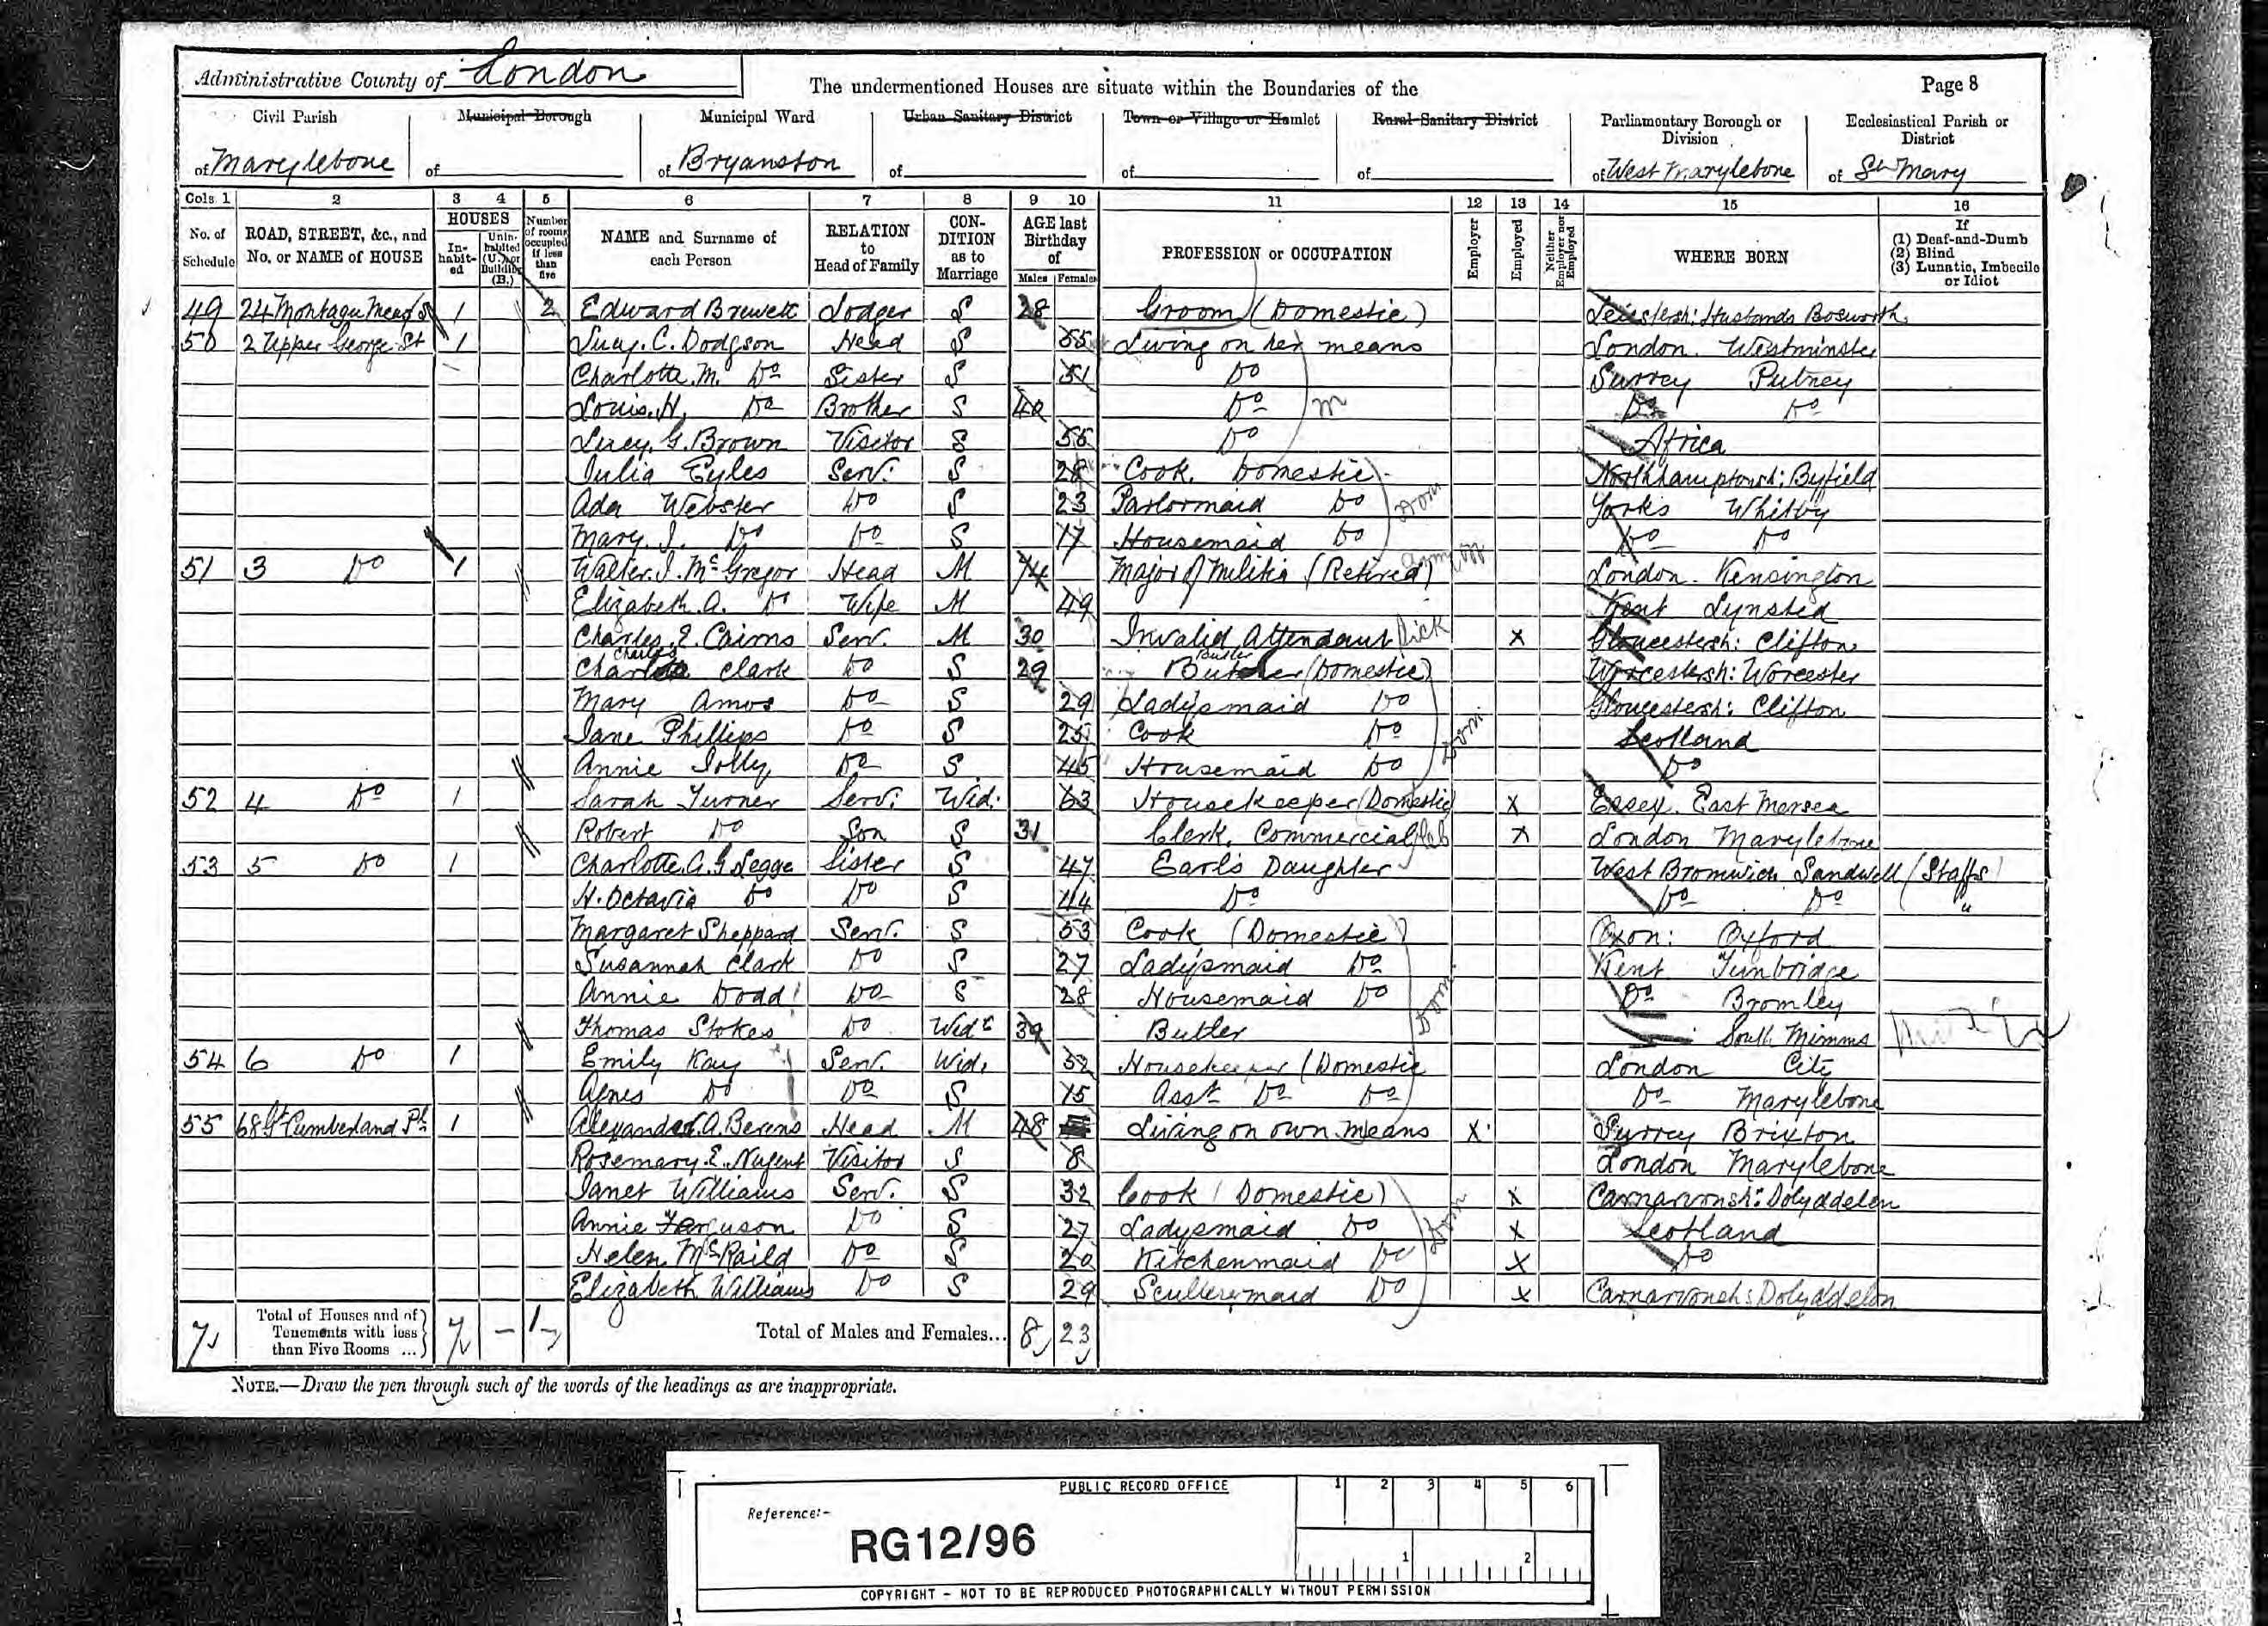 Administrative County of London The undermentioned Houses are situate within the Boundaries of the Page 8
Civil Parish Municipal Borough Municipal Ward Urban Sanitary District Town or Village or Hamlet Rural Sanitary District Parliamentary Borough or Division Ecclesiastical Parish or District
of Marylebone of of Bryanston of of of of West Marylebone of St Mary
Cols 1 2 3 4 5 6 7 8 9 10 11 12 13 14 15 16
No. of Schedule ROAD, STREET, &c., and No. or NAME of HOUSE HOUSES In-habit-ed Unin-habited (U.) or Building (B.) Number of rooms occupied if less than five NAME and Surname of each Person RELATION to Head of Family CON-DITION as to Marriage AGE last Birthday of Males Females PROFESSION or OCCUPATION Employer Employed Neither Employer nor Employed WHERE BORN If (1) Deaf-and-Dumb (2) Blind (3) Lunatic, Imbecile or Idiot
49 24 Montagu Mews S 1 2 Edward Brewett Lodger S 28 Groom (Domestic) Leicestersh: Husbands Bosworth
50 2 Upper George St 1 Lucy. C. Dodgson Head S 55 Living on her means London. Westminster
Charlotte. M. Do Sister S 51 Do Surrey Putney
Louis. H. Do Brother S 40 Do m Do Do
Lucy. G. Brown Visitor S 56 Do Africa
Julia Eyles Serv. S 28 Cook. Domestic Northamptonsh: Byfield
Ada Webster Do S 23 Parlormaid Do Dom Yorks Whitby
Mary. J. Do Do S 17 Housemaid Do Do Do
51 3 Do 1 Walter. J. McGregor Head M 74 Major of Militia (Retired) Army Off London. Kensington
Elizabeth. A. Do Wife M 49 Kent Lynsted
Charles. E. Cairns Serv. M 30 Invalid Attendant Sick X Gloucestersh: Clifton
Charles Clark Do S 29 Butler (Domestic) Worcestersh: Worcester
Mary Amos Do S 29 Ladysmaid Do Gloucestersh: Clifton
Jane Phillips Do S 25 Cook Do Dom Scotland
Annie Jolly Do S 45 Housemaid Do Do
52 4 Do 1 Sarah Turner Serv: Wid. 63 Housekeeper (Domestic) X Essex. East Mersea
Robert Do Son S 31 Clerk. Commercial X London Marylebone
53 5 Do 1 Charlotte. A. G Legge Sister S 47 Earl's Daughter West Bromwich Sandwell (Staffs)
H. Octavia Do Do S 44 Do Do Do "
Margaret Sheppard Serv. S 53 Cook (Domestic) Oxon: Oxford
Susannah Clark Do S 27 Ladysmaid Do Kent Tunbridge
Annie Dodd Do S 28 Housemaid Do Dom Do Bromley
Thomas Stokes Do Widr 39 Butler South Mimms
54 6 Do 1 Emily Kay Serv. Wid. 52 Housekeeper (Domestic London City
Agnes Do Do S 15 Asst Do Do Do Marylebone
55 68 Gt Cumberland Pl 1 Alexander. A. Berens Head M 48 Living on own means X Surrey Brixton
Rosemary. E. Nugent Visitor S 8 London Marylebone
Janet Williams Serv. S 32 Cook (Domestic) X Carnarvonsh: Dolyddelen
Annie Ferguson Do S 27 Ladysmaid Do Dom X Scotland
Helen McRaild Do S 20 Kitchenmaid Do X Do
Elizabeth Williams Do S 29 Scullerymaid Do X Carnarvonsh: Dolyddelen
7 Total of Houses and of Tenements with less than Five Rooms ... 7 – 1 Total of Males and Females... 8 23
NOTE.—Draw the pen through such of the words of the headings as are inappropriate.
PUBLIC RECORD OFFICE 1 2 3 4 5 6
Reference:-
RG12/96 1 2
COPYRIGHT - NOT TO BE REPRODUCED PHOTOGRAPHICALLY WITHOUT PERMISSION